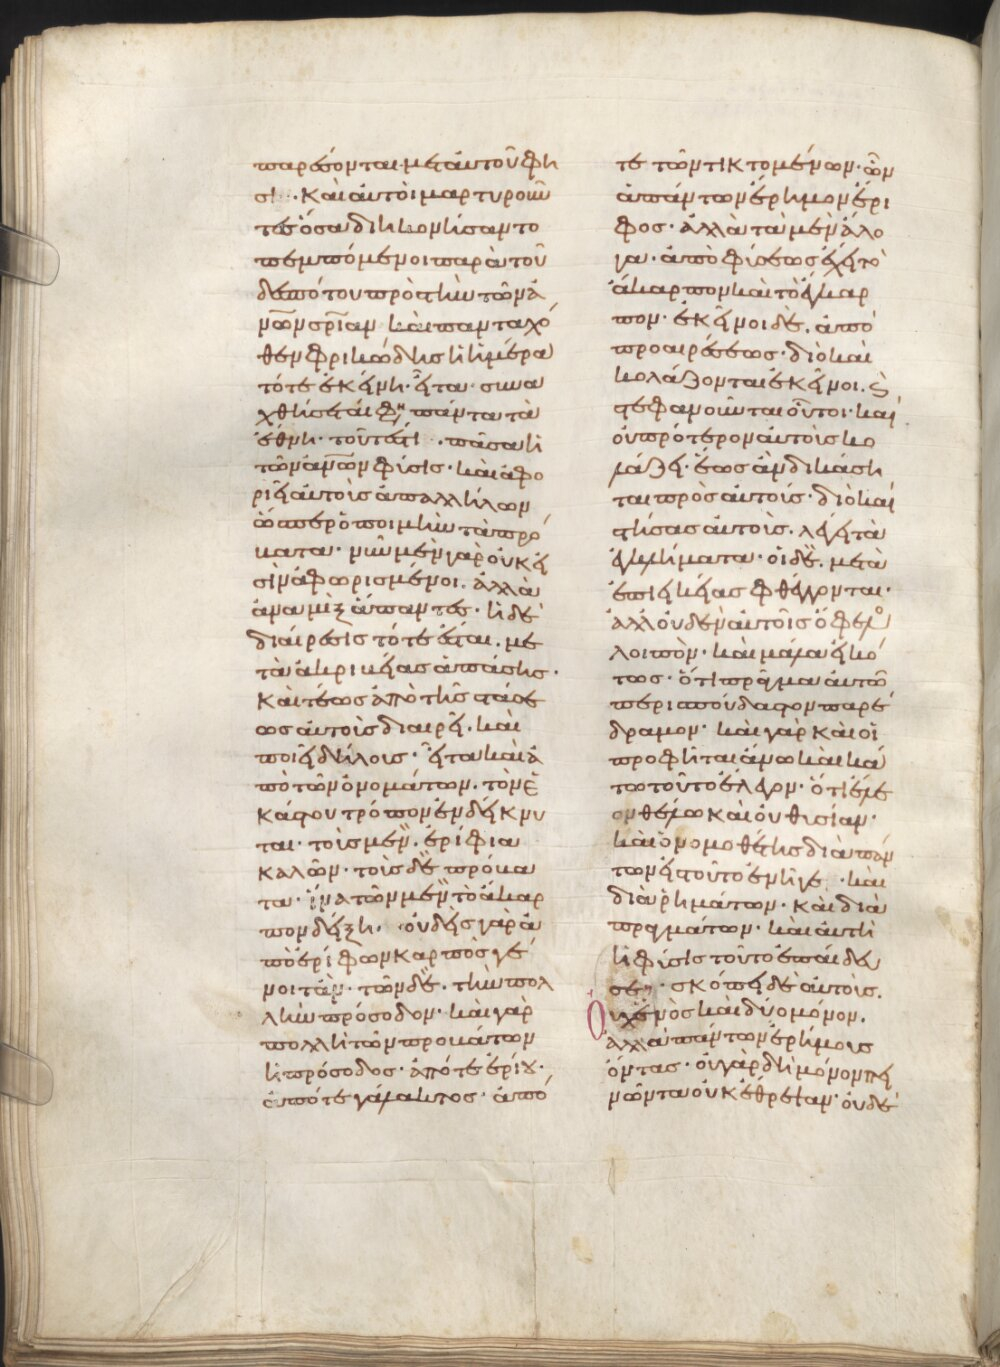 παρέσονται μετ' αὐτοῦ φη
σί· καὶ αὐτοὶ μαρτυροῦν
τες ὅσα διηκονήσαντο
πεμπόμενοι παρὰ τοῦ
δεσπότου πρὸς τὴν τῶν ἀ
νῶν σρίαν καὶ πανταχό
θεν φρικώδης ἡ ἡμέρα
τότε ἐκείνη· εἶτα· συνα
χθήσεται φη πάντα τὰ
ἔθνη· τουτέστι· πᾶσα ἡ
τῶν ἀνων φύσις· καὶ ἀφο
ριεῖ αὐτοὺς ἀπ' ἀλλήλων
ὥσπερ ὁ ποιμὴν τὰ πρό
βατα· νῦν μὲν γὰρ οὐκ εἰ
σὶν ἀφωρισμένοι· ἀλλὰ
ἀναμὶξ ἅπαντες· ἡ δὲ
διαίρεσις τότε ἔσται· με
τὰ ἀκριβείας ἁπάσης·
Καὶ τέως ἀπὸ τῆς στάσε
ως αὐτοὺς διαιρεῖ· καὶ
ποιεῖ δήλους· εἶτα καὶ ἀ
πὸ τῶν ὀνομάτων· τὸν ἑ
κάστου τρόπον ἐνδείκνυ
ται· τοὺς μὲν ἐρίφια
καλῶν· τοὺς δὲ πρόβα
τα· ἵνα τῶν μὲν τὸ ἄκαρ
πον δείξη· οὐδεὶς γὰρ ἀ
πὸ ἐρίφων καρπὸς γέ
νοιτ' ἄν· τῶν δὲ· τὴν πολ
λὴν πρόσοδον· καὶ γὰρ
πολλὴ τῶν προβάτων
ἡ πρόσοδος· ἀπό τε ἐρίου·
ἀπό τε γάλακτος· ἀπό
τε τῶν τικτομένων· ὧν
ἁπάντων ἔρημον ἔρι
φος· ἀλλὰ τὰ μὲν ἄλο
γα· ἀπὸ φύσεως ἔχει τὸ
ἄκαρπον καὶ τὸ ἔγκαρ
πον· ἐκεῖνοι δὲ· ἀπὸ
προαιρέσεως· διὸ καὶ
κολάζονται ἐκεῖνοι· καὶ
στεφανοῦνται οὗτοι· καὶ
οὐ πρότερον αὐτοὺς κο
λάζει· ἕως ἂν δικάση
ται πρὸς αὐτούς· διὸ καὶ
στήσας αὐτοὺς· λέγει τὰ
ἐγκλήματα· οἱ δὲ· μετὰ
ἐπιεικείας φθέγγονται·
ἀλλ' οὐδὲν αὐτοῖς ὄφελος
λοιπὸν· καὶ μάλα εἰκό
τως· ὅτι πρᾶγμα αὐτῶ
περισπούδαστον παρέ
δραμον· καὶ γὰρ καὶ οἱ
προφῆται ἄνω καὶ κά
τω τοῦτο ἔλεγον· ὅτι ἔλε
ον θέλω καὶ οὐ θυσίαν·
καὶ ὁ νομοθέτης διὰ πάν
των εἰς τοῦτο ἐνῆγε· καὶ
διὰ ῥημάτων· καὶ διὰ
πραγμάτων· καὶ αὐτὴ
ἡ φύσις τοῦτο ἐπαίδευ
σε· σκόπει δὲ αὐτοὺς·
Οὐχ ἑνὸς καὶ δύο μόνον·
ἀλλὰ πάντων ἐρήμους
ὄντας· οὐ γὰρ δὴ μόνον πει
νῶντα οὐκ ἔθρεψαν· οὐδὲ